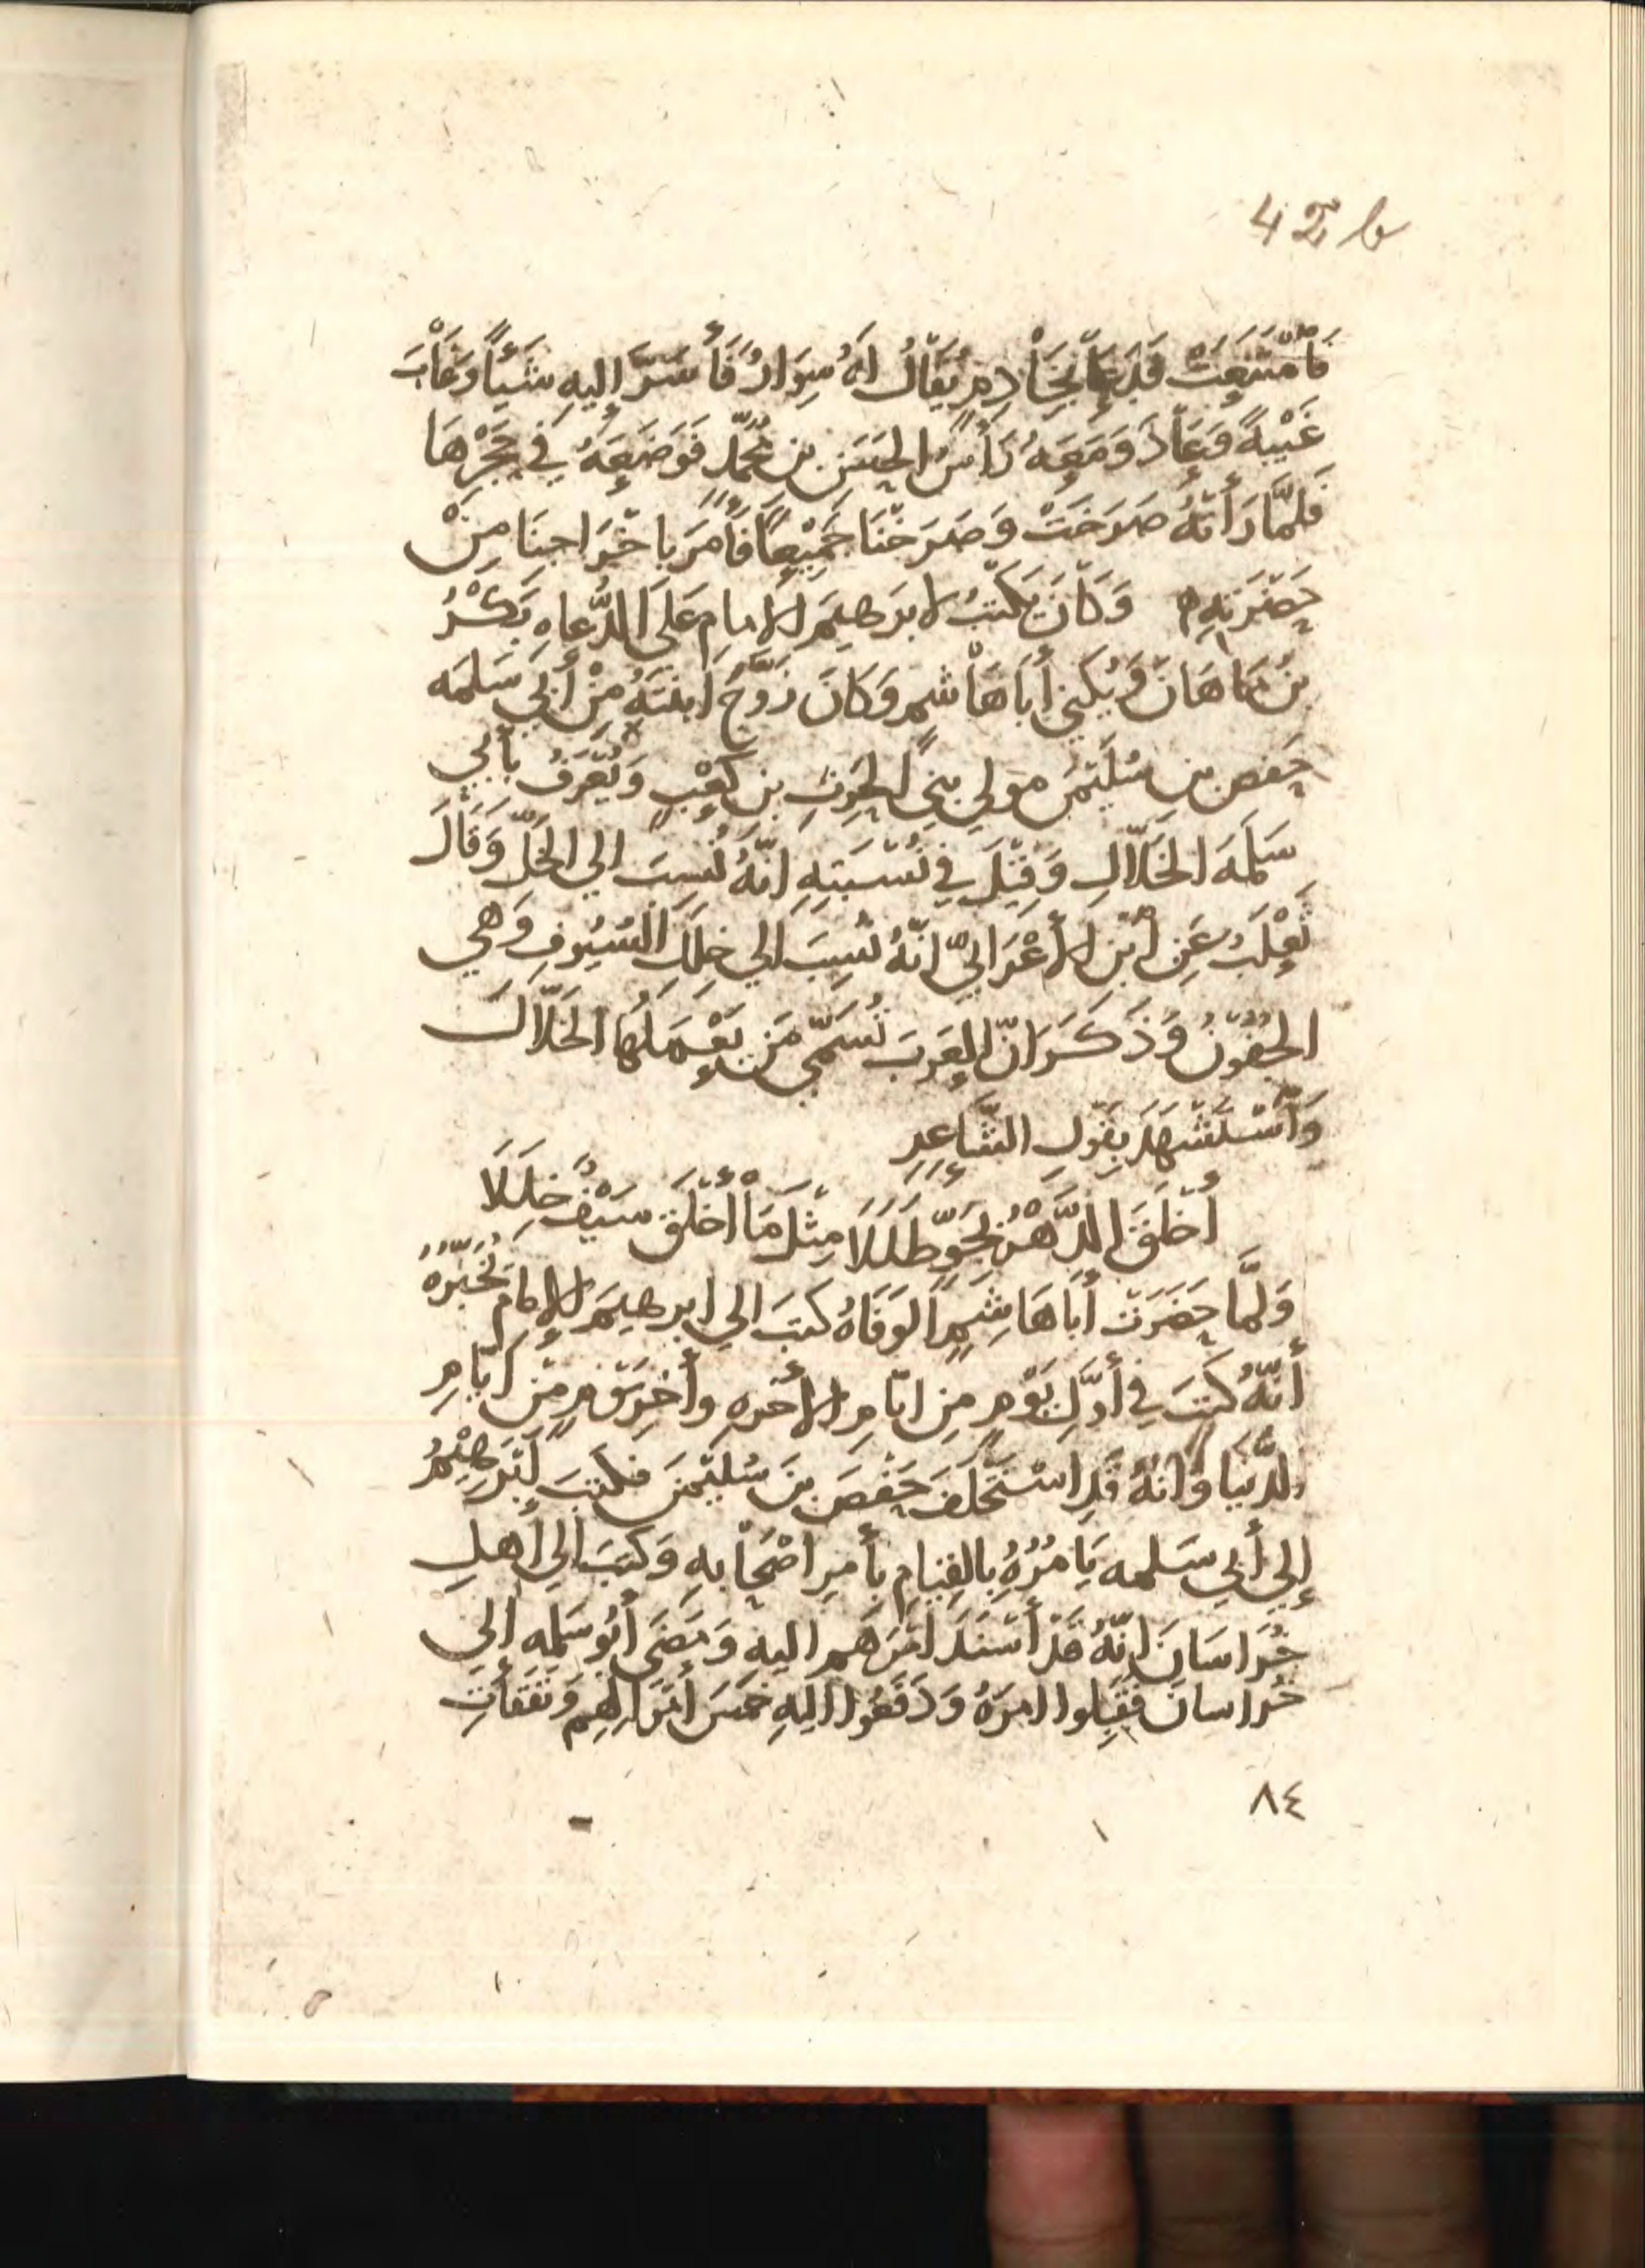 42 b
فَامْتَنَعَتْ فَدَعَا بِخَادِمٍ يُقَالُ لَهُ سِوَارٌ فَأَسَرَّ إليهِ شَيْئًا وَغَابَ
غَيْبَةً وَعَادَ وَمَعَهُ رَأْسُ الحَسَنِ بن مُحمَّدٍ فَوَضَعَهُ فِي حَجْرِهَا
فَلَمَّا رَأَتْهُ صَرَخَتْ وَصَرَخْنَا جَمِيعًا فَأَمَرَ بِاخْرَاجِنَا مِنْ
حَضْرَتِهِ ه وَكَانَ يَكْتُبُ لابرَهيمَ الامامِ عَلَى الدُّعاهِ بَكْرُ
بنُ مَاهَانَ وَيُكنى أبَا هَاشمٍ وَكَانَ زَوَّجَ ابنَتَهُ مِنْ أَبِي سَلَمَه
حَفصِ بنِ سُلَيْمنَ مَولى بنِي الحرِثِ بنِ كَعْبٍ وَيُعْرَفُ بأبي
سَلَمَهَ الخَلّالِ وَقِيْلَ فِي نُسْبَتِهِ انّهُ نُسِبَ الي الخَلّ وَقَالَ
ثَعْلَبٌ عَنِ ابْنِ الأعْرَابيّ انّهُ نُسِبَ الي خِلَلِ السُيُوفِ وَهي
الجُفُوْنُ وَذَكَرَ انّ العَرَبَ تُسَمّي مَن يَعْمَلُهَا الخَلّالَ
وَاسْتَشْهَدَ بِقَولِ الشَّاعِرِ
أَخْلَقَ الدَّهْرُ بِجَوٍّ طَلَلَا مِثْلَ مَا أَخْلَقَ سَيْفٌ خِلَلَا
وَلمَّا حَضَرَت أبَا هَاشِمٍ الوَفَاهُ كتبَ الي ابرهيمَ الإمَامِ يُخَبّرُهُ
أنّهُ كَتَبَ فِي أَوَّلِ يَوْمٍ مِن ايّامِ الأخرهِ وأخِرِ يَوْمٍ مِنْ ايّامِ
الدُّنيَا وَانهُ قَدِ اسْتَخْلَفَ حَفْصَ بنَ سُلَيْمنَ فكتَبَ ابْرَهِيْمُ
إلي أبي سَلمه يَامُرُهُ بالقِيَامِ بأَمرِ اصْحَابهِ وَكتَبَ الي أهلِ
خُرَاسَانَ انّهُ قَدْ أَسْنَدَ امْرَهم اليهِ وَمَضَى أبُو سَلمه إلى
خُراسانَ فقَبِلوا امرَهُ وَدَفَعُوا اليهِ خمسَ أَموَالِهم وَنَفَقَاتِ
٨٤